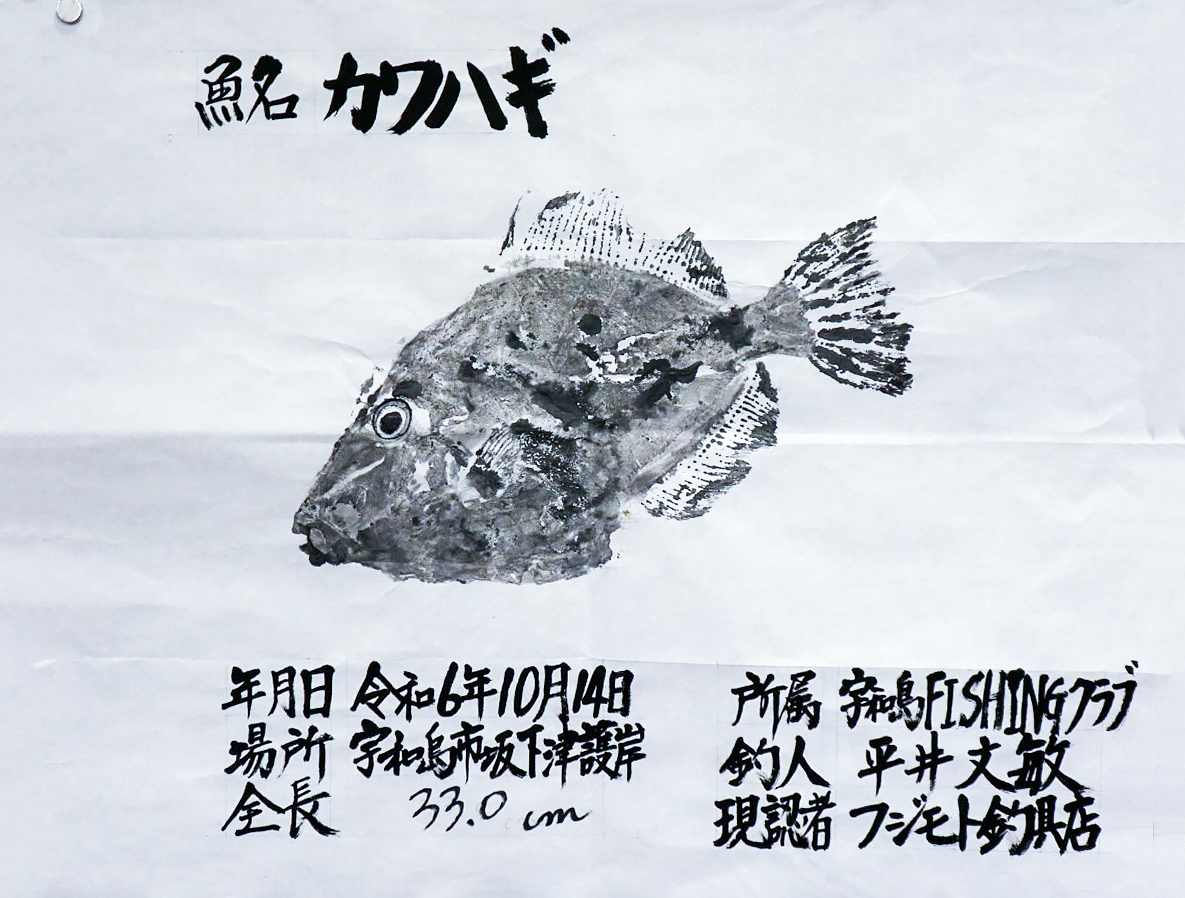 魚名 カワハギ
年月日 令和6年10月14日
場所 宇和島市坂下津護岸
全長 33.0 cm
所属 宇和島FISHINGクラブ
釣人 平井文敏
現認者 フジモト釣具店